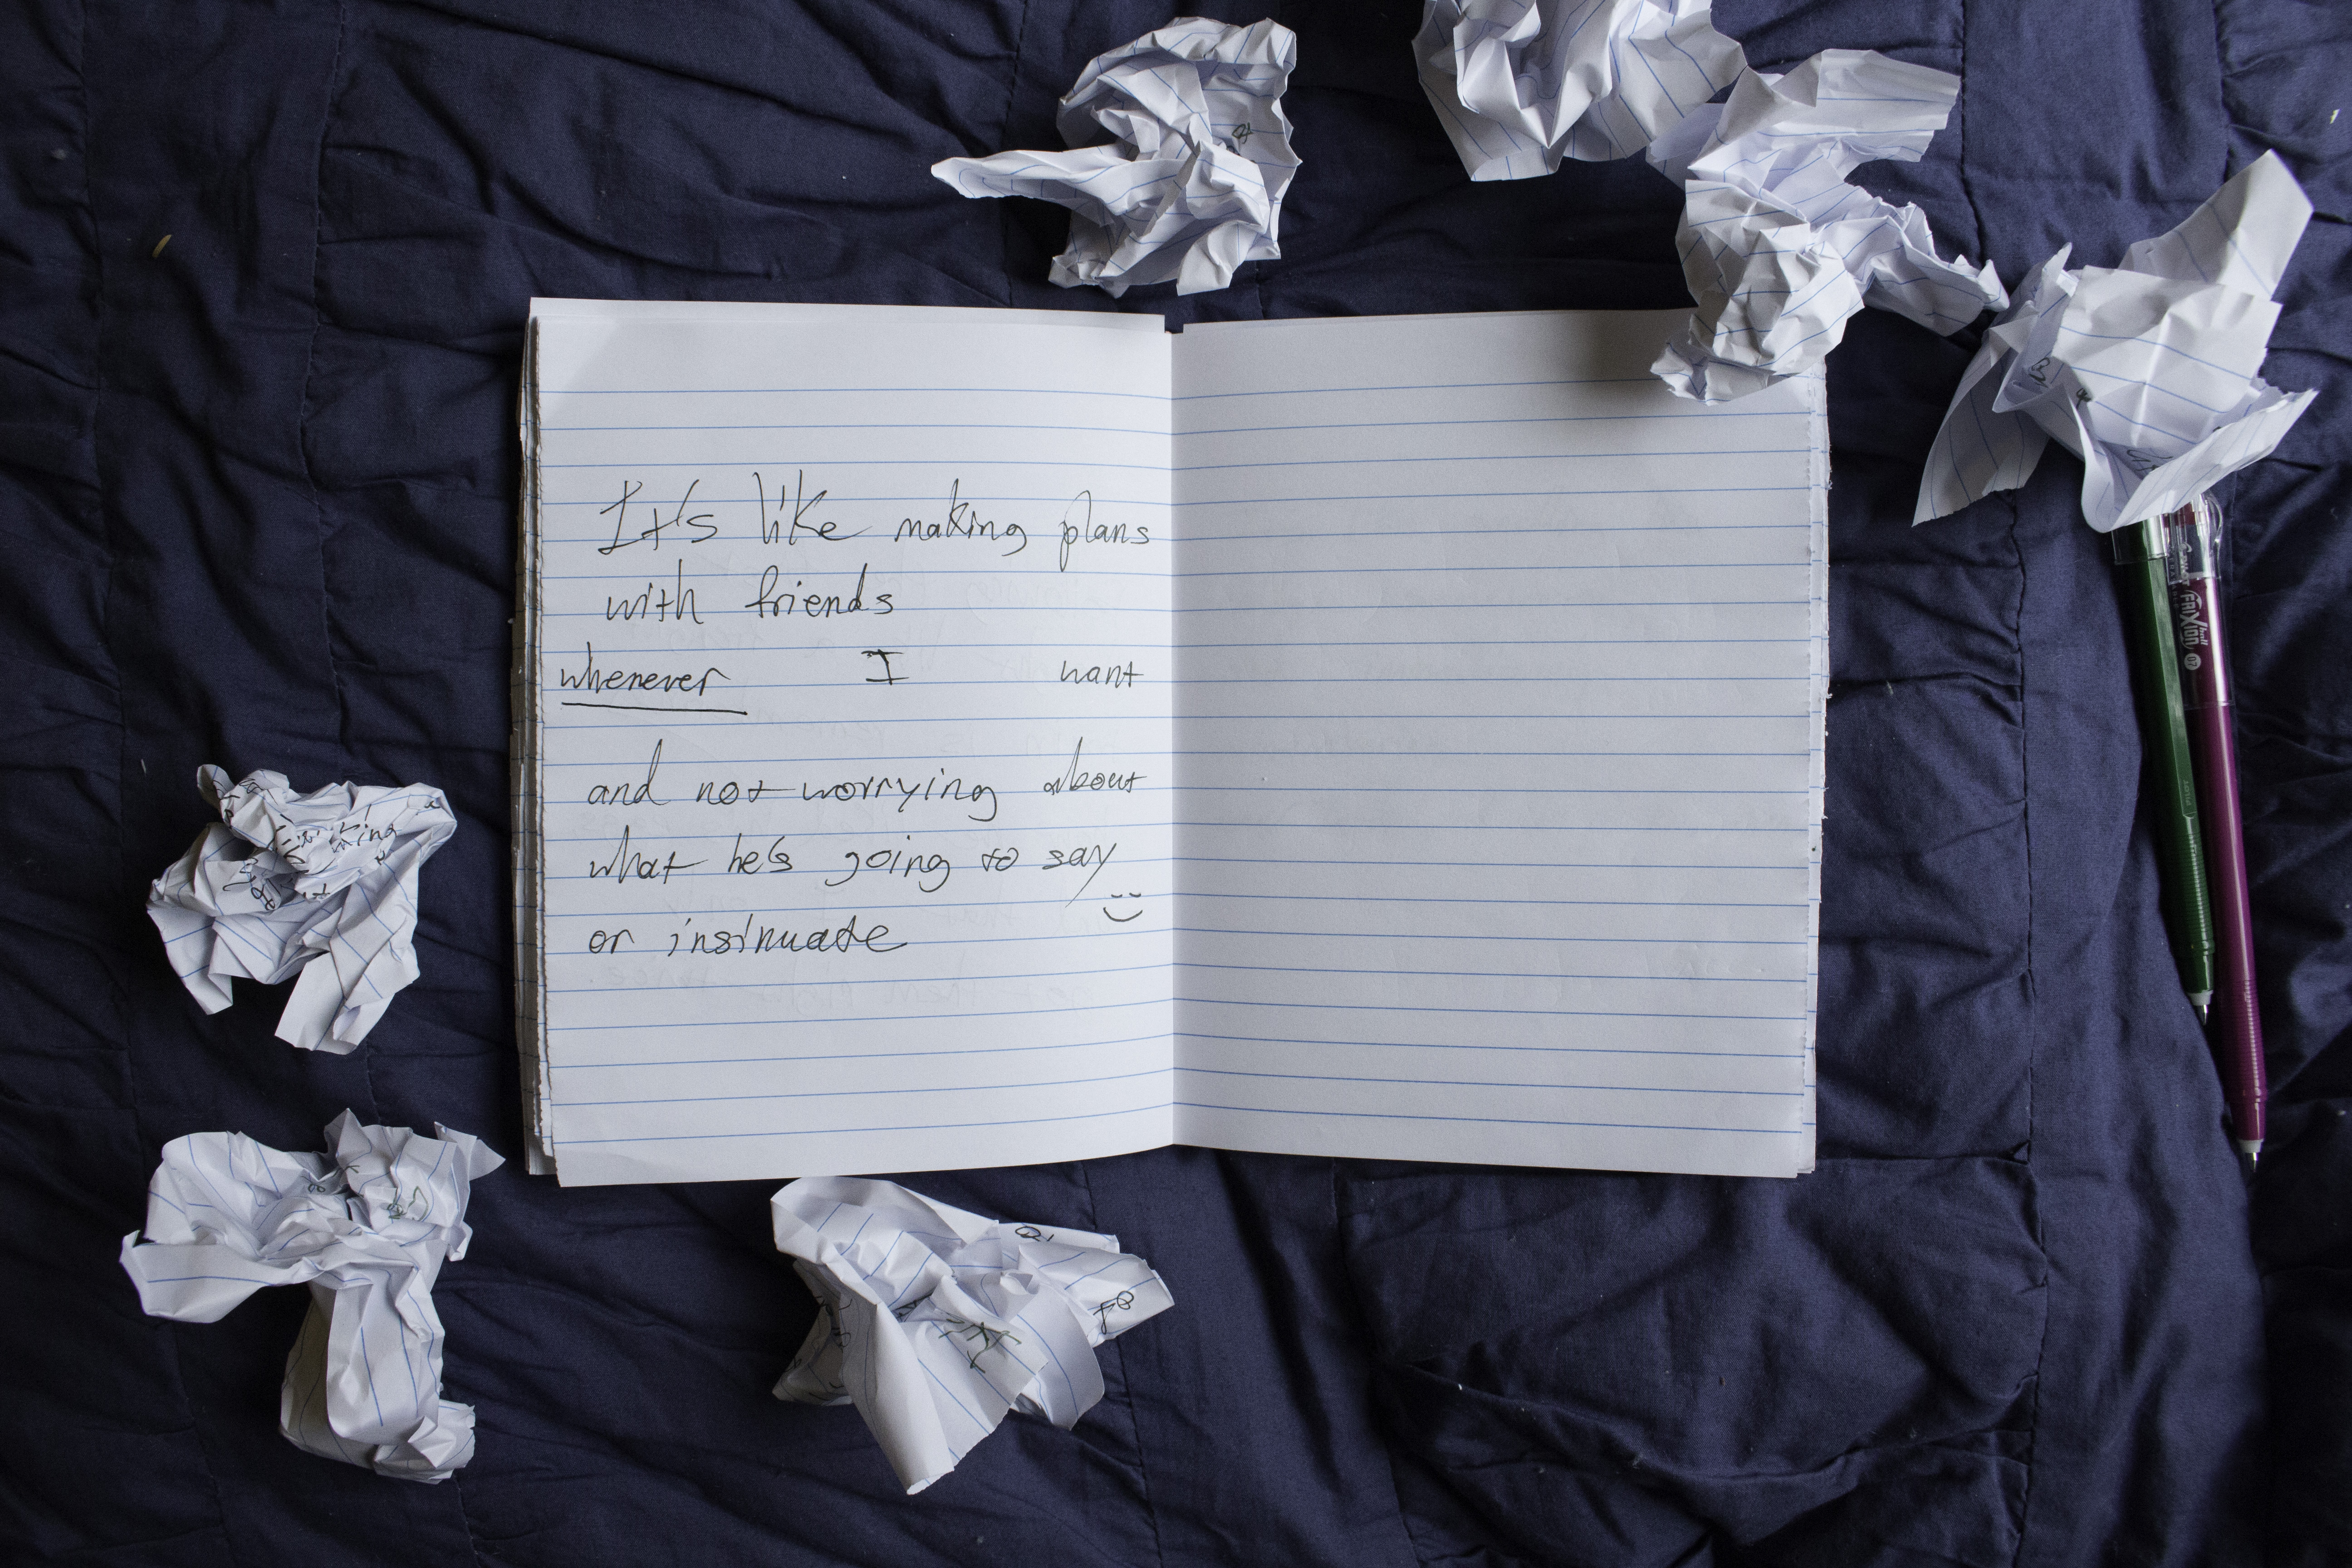 It's like making plans
with friends
whenever I want
and not worrying about
what he's going to say
or insinuate
FRIXION ball 07